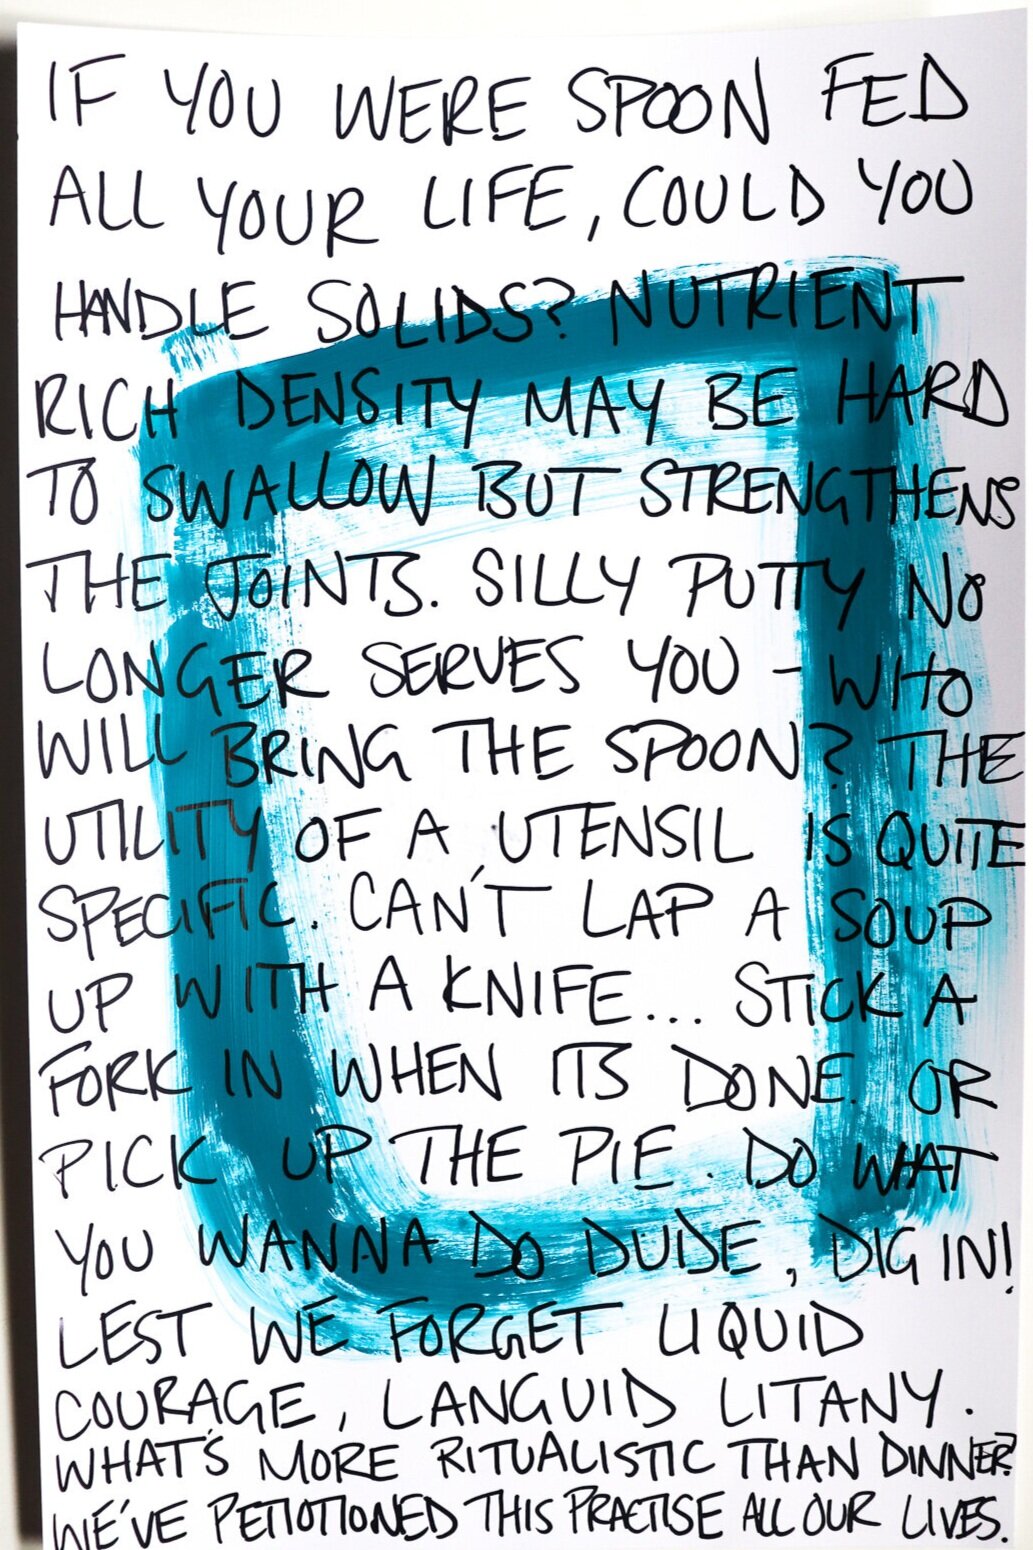 IF YOU WERE SPOON FED
ALL YOUR LIFE, COULD YOU
HANDLE SOLIDS? NUTRIENT
RICH DENSITY MAY BE HARD
TO SWALLOW BUT STRENGTHENS
THE JOINTS. SILLY PUTTY NO
LONGER SERVES YOU - WHO
WILL BRING THE SPOON? THE
UTILITY OF A UTENSIL IS QUITE
SPECIFIC. CAN'T LAP A SOUP
UP WITH A KNIFE... STICK A
FORK IN WHEN ITS DONE. OR
PICK UP THE PIE. DO WHAT
YOU WANNA DO DUDE, DIG IN!
LEST WE FORGET LIQUID
COURAGE, LANGUID LITANY.
WHAT'S MORE RITUALISTIC THAN DINNER?
WE'VE PETITIONED THIS PRACTISE ALL OUR LIVES.